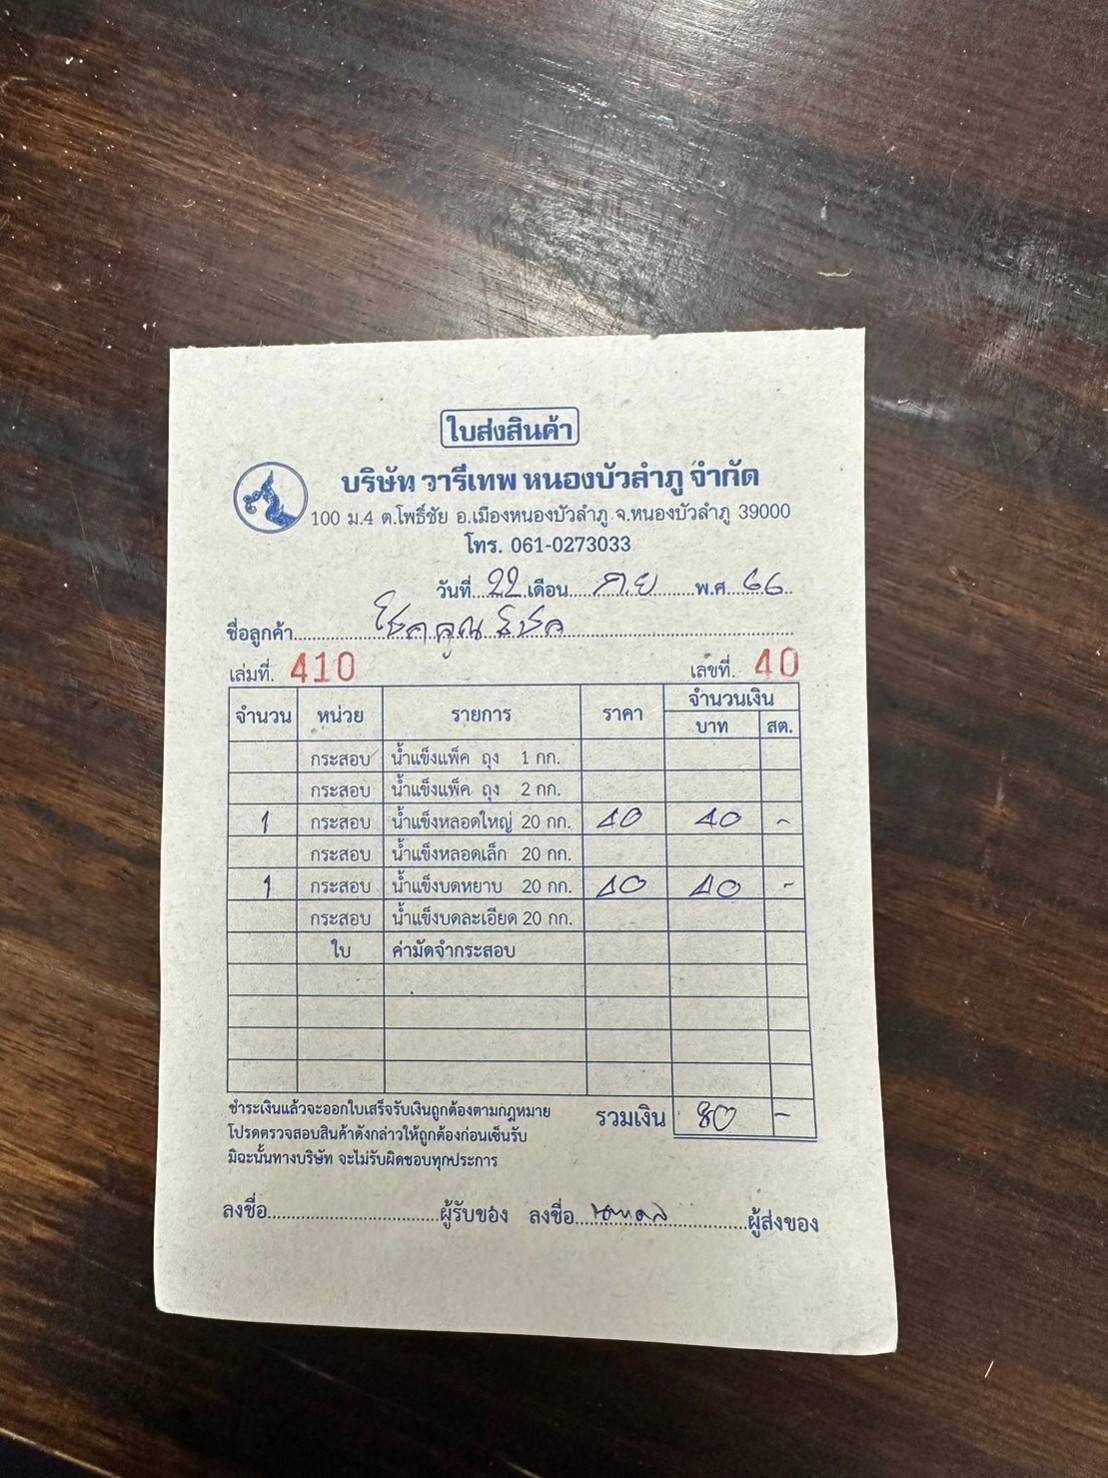 ใบส่งสินค้า
บริษัท วารีเทพ หนองบัวลำภู จำกัด
100 ม.4 ต.โพธิ์ชัย อ.เมืองหนองบัวลำภู จ.หนองบัวลำภู 39000
โทร. 061-0273033
วันที่ 22 เดือน ก.ย พ.ศ. 66
ชื่อลูกค้า โชคคูณโชค
เล่มที่. 410 เลขที่. 40
จำนวน หน่วย รายการ ราคา จำนวนเงิน
บาท สต.
กระสอบ น้ำแข็งแพ็ค ถุง 1 กก.
กระสอบ น้ำแข็งแพ็ค ถุง 2 กก.
1 กระสอบ น้ำแข็งหลอดใหญ่ 20 กก. 40 40 -
กระสอบ น้ำแข็งหลอดเล็ก 20 กก.
1 กระสอบ น้ำแข็งบดหยาบ 20 กก. 40 40 -
กระสอบ น้ำแข็งบดละเอียด 20 กก.
ใบ ค่ามัดจำกระสอบ
ชำระเงินแล้วจะออกใบเสร็จรับเงินถูกต้องตามกฎหมาย รวมเงิน 80 -
โปรดตรวจสอบสินค้าดังกล่าวให้ถูกต้องก่อนเซ็นรับ
มิฉะนั้นทางบริษัท จะไม่รับผิดชอบทุกประการ
ลงชื่อ ผู้รับของ ลงชื่อ ผู้ส่งของ